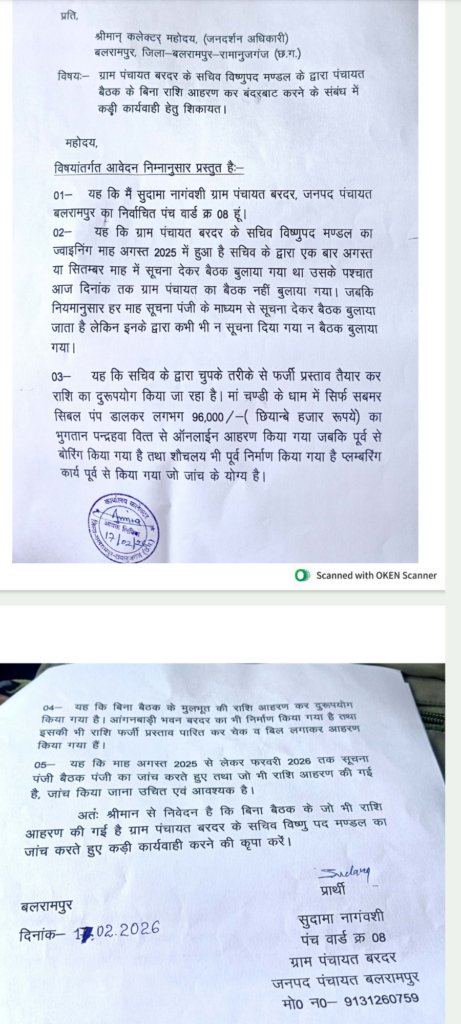 प्रति,
श्रीमान् कलेक्टर् महोदय, (जनदर्शन अधिकारी)
बलरामपुर, जिला–बलरामपुर–रामानुजगंज (छ.ग.)
विषयः– ग्राम पंचायत बरदर के सचिव विष्णुपद मण्डल के द्वारा पंचायत
बैठक के बिना राशि आहरण कर बंदरबाट करने के संबंध में
कड़ी कार्यवाही हेतु शिकायत।
महोदय,
विषयांतर्गत आवेदन निम्नानुसार प्रस्तुत हैः–
01– यह कि मैं सुदामा नागंवशी ग्राम पंचायत बरदर, जनपद पंचायत
बलरामपुर का निर्वाचित पंच वार्ड क्र 08 हूं।
02– यह कि ग्राम पंचायत बरदर के सचिव विष्णुपद मण्डल का
ज्वाइनिंग माह अगस्त 2025 में हुआ है सचिव के द्वारा एक बार अगस्त
या सितम्बर माह में सूचना देकर बैठक बुलाया गया था उसके पश्चात
आज दिनांक तक ग्राम पंचायत का बैठक नहीं बुलाया गया। जबकि
नियमानुसार हर माह सूचना पंजी के माध्यम से सूचना देकर बैठक बुलाया
जाता है लेकिन इनके द्वारा कभी भी न सूचना दिया गया न बैठक बुलाया
गया।
03– यह कि सचिव के द्वारा चुपके तरीके से फर्जी प्रस्ताव तैयार कर
राशि का दुरूपयोग किया जा रहा है। मां चण्डी के धाम में सिर्फ सबमर
सिबल पंप डालकर लगभग 96,000/–( छियान्बे हजार रूपये) का
भुगतान पन्द्रहवा वित्त से ऑनलाईन आहरण किया गया जबकि पूर्व से
बोरिंग किया गया है तथा शौचलय भी पूर्व निर्माण किया गया है प्लम्बरिंग
कार्य पूर्व से किया गया जो जांच के योग्य है।
कार्यालय कलेक्टर
17/02/26
Scanned with OKEN Scanner
04– यह कि बिना बैठक के मुलभूत की राशि आहरण कर दुरूपयोग
किया गया है। आंगनबाड़ी भवन बरदर का भी निर्माण किया गया है तथा
इसकी भी राशि फर्जी प्रस्ताव पारित कर चेक व बिल लगाकर आहरण
किया गया हैं।
05– यह कि माह अगस्त 2025 से लेकर फरवरी 2026 तक सूचना
पंजी बैठक पंजी का जांच करते हुए तथा जो भी राशि आहरण की गई
है, जांच किया जाना उचित एवं आवश्यक है।
अतः श्रीमान से निवेदन है कि बिना बैठक के जो भी राशि
आहरण की गई है ग्राम पंचायत बरदर के सचिव विष्णु पद मण्डल का
जांच करते हुए कड़ी कार्यवाही करने की कृपा करें।
प्रार्थी
बलरामपुर
दिनांक– 17.02.2026
सुदामा नागंवशी
पंच वार्ड क्र 08
ग्राम पंचायत बरदर
जनपद पंचायत बलरामपुर
मो0 न0– 9131260759